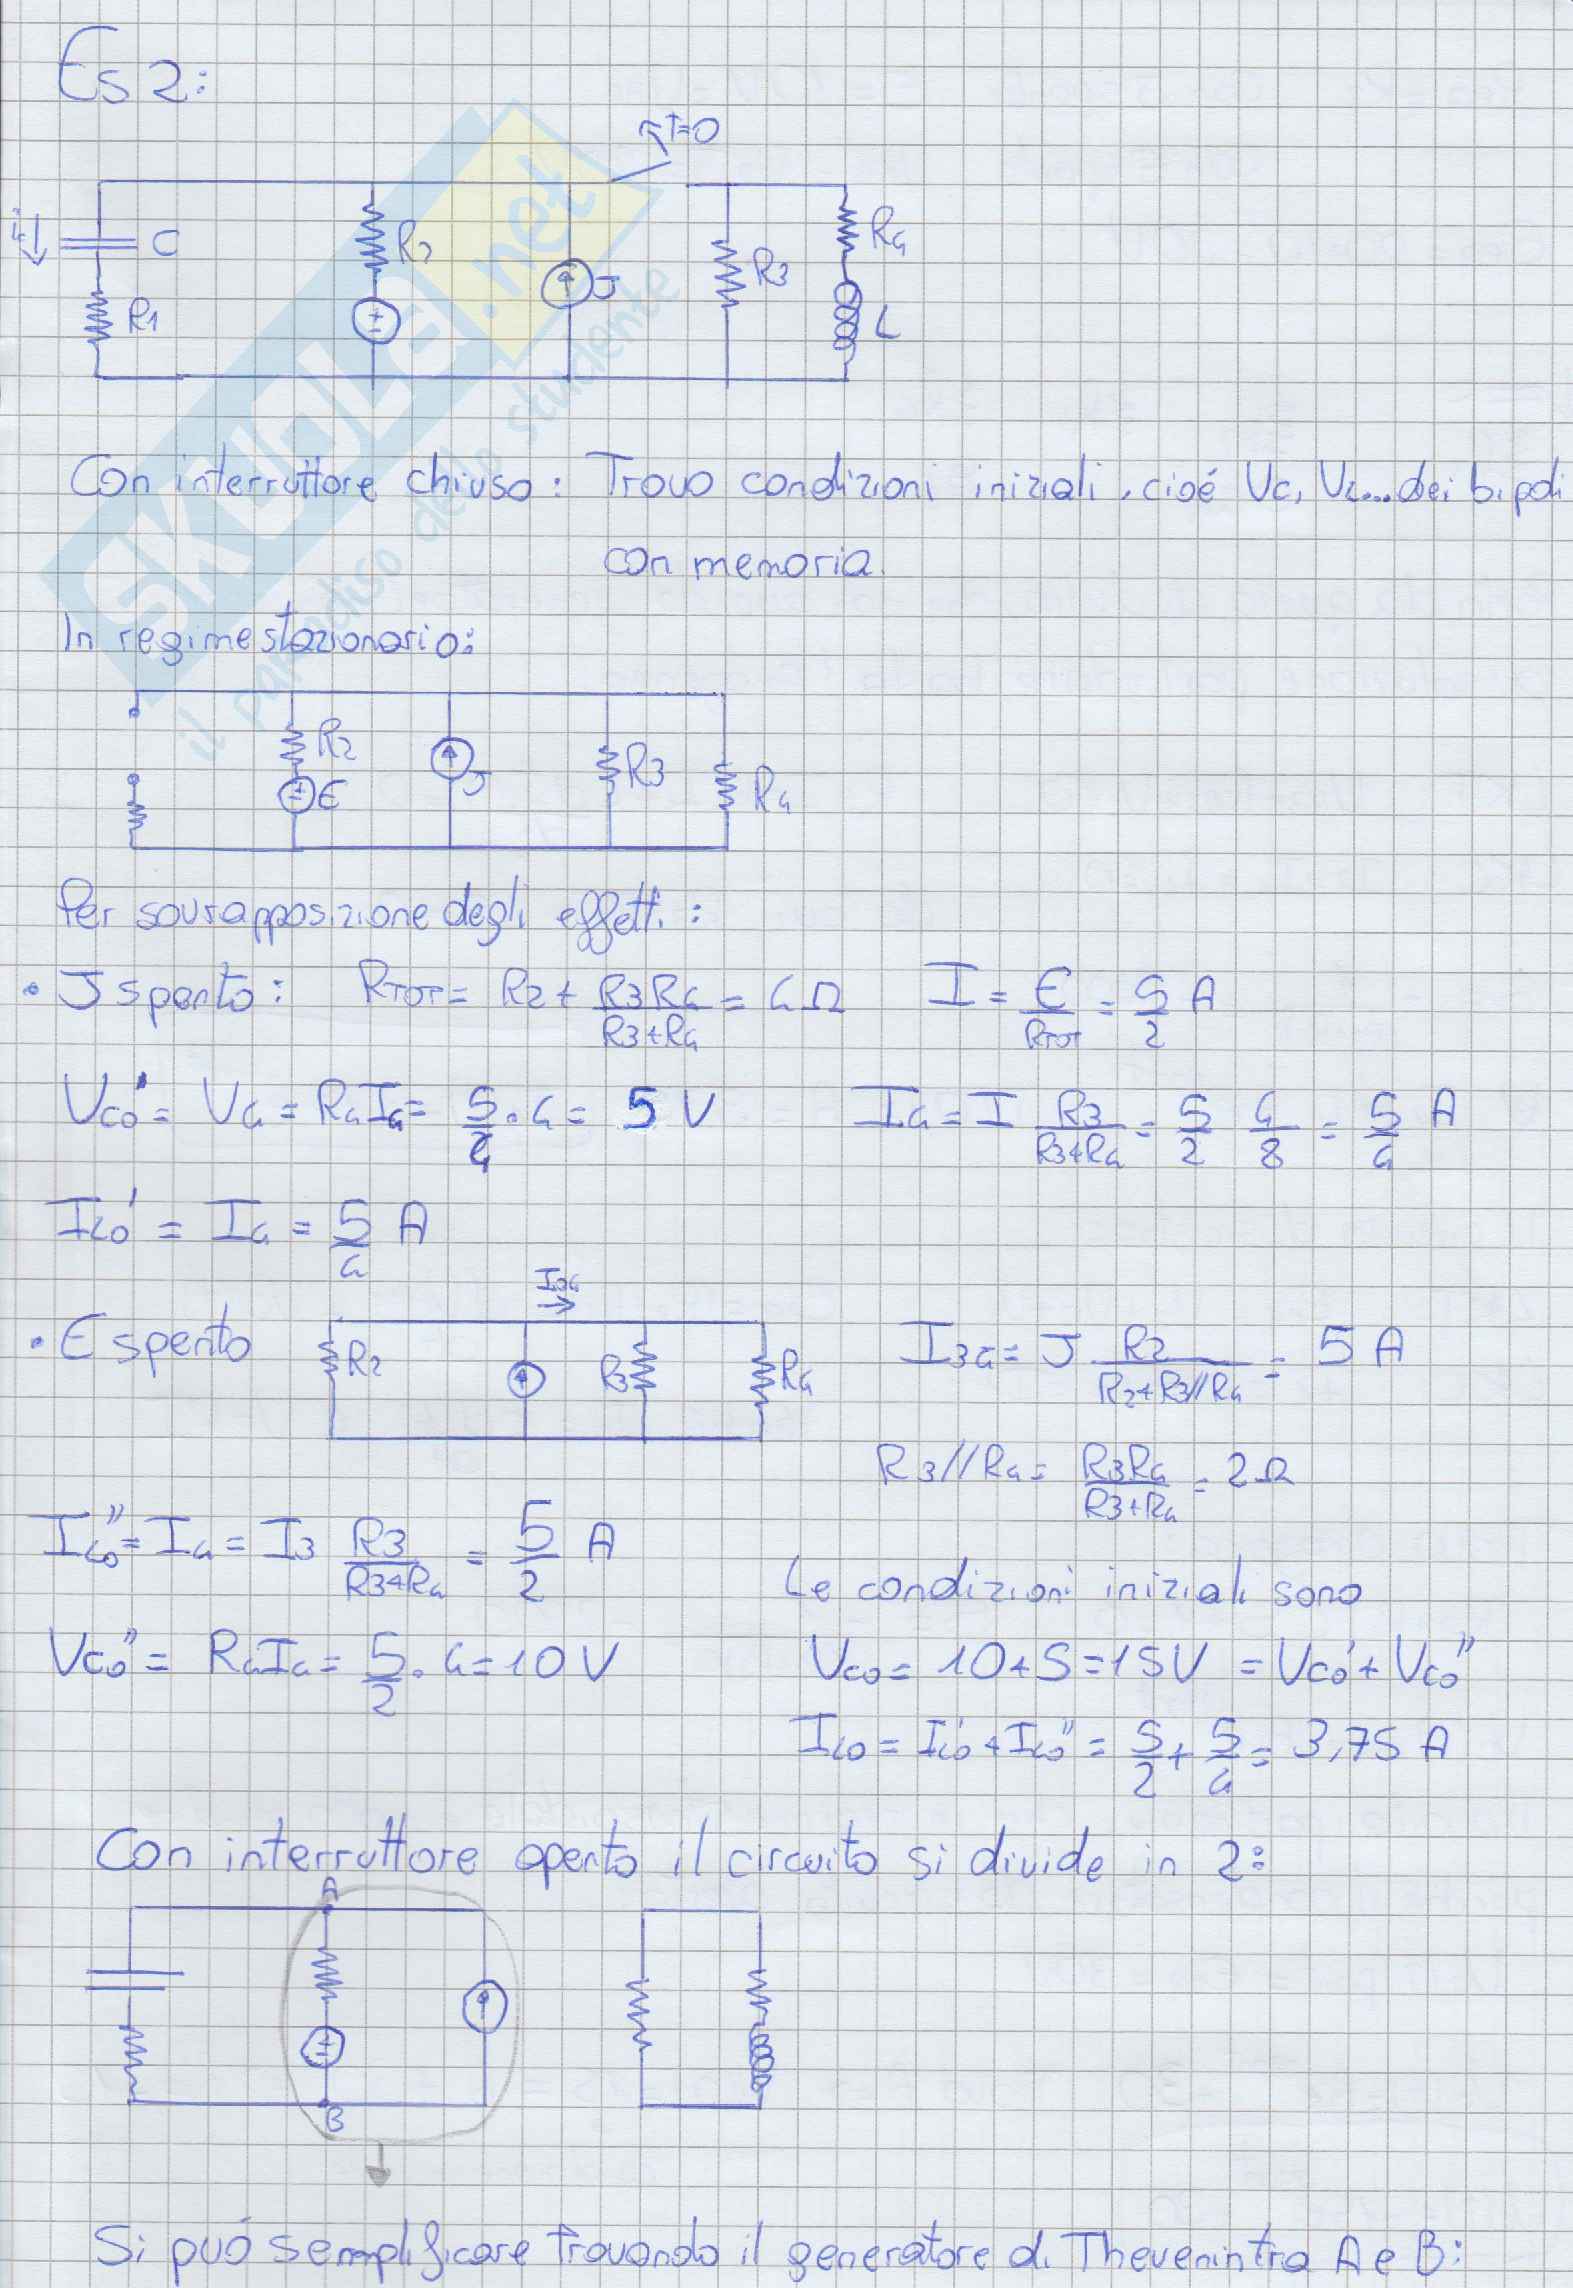 Es 2:
T=0
i↓ C R2 J R3 R4
R1 + - L
Con interruttore chiuso: Trovo condizioni iniziali, cioé Vc, VL... dei bipoli
con memoria.
In regime stazionario:
R2 E J R3 R4
Per sovrapposizione degli effetti:
• J spento: RTOT = R2 + R3R4/(R3+R4) = 4Ω I = E/RTOT = 5/2 A
Vco' = V4 = R4I4 = 5/4 · 4 = 5 V I4 = I R3/(R3+R4) = 5/2 4/8 = 5/4 A
ILo' = I4 = 5/4 A
I34
• E spento R2 R3 R4 I34 = J R2/(R2+R3//R4) = 5 A
R3//R4 = R3R4/(R3+R4) = 2Ω
ILo'' = I4 = I3 R3/(R3+R4) = 5/2 A
Le condizioni iniziali sono
Vco'' = R4I4 = 5/2 · 4 = 10 V Vco = 10+5 = 15V = Vco' + Vco''
ILo = ILo' + ILo'' = 5/2 + 5/4 = 3,75 A
Con interruttore aperto il circuito si divide in 2:
A
B
Si puó semplificare trovando il generatore di Thevenin tra A e B:
SKUOLA.net
il paradiso dello studente